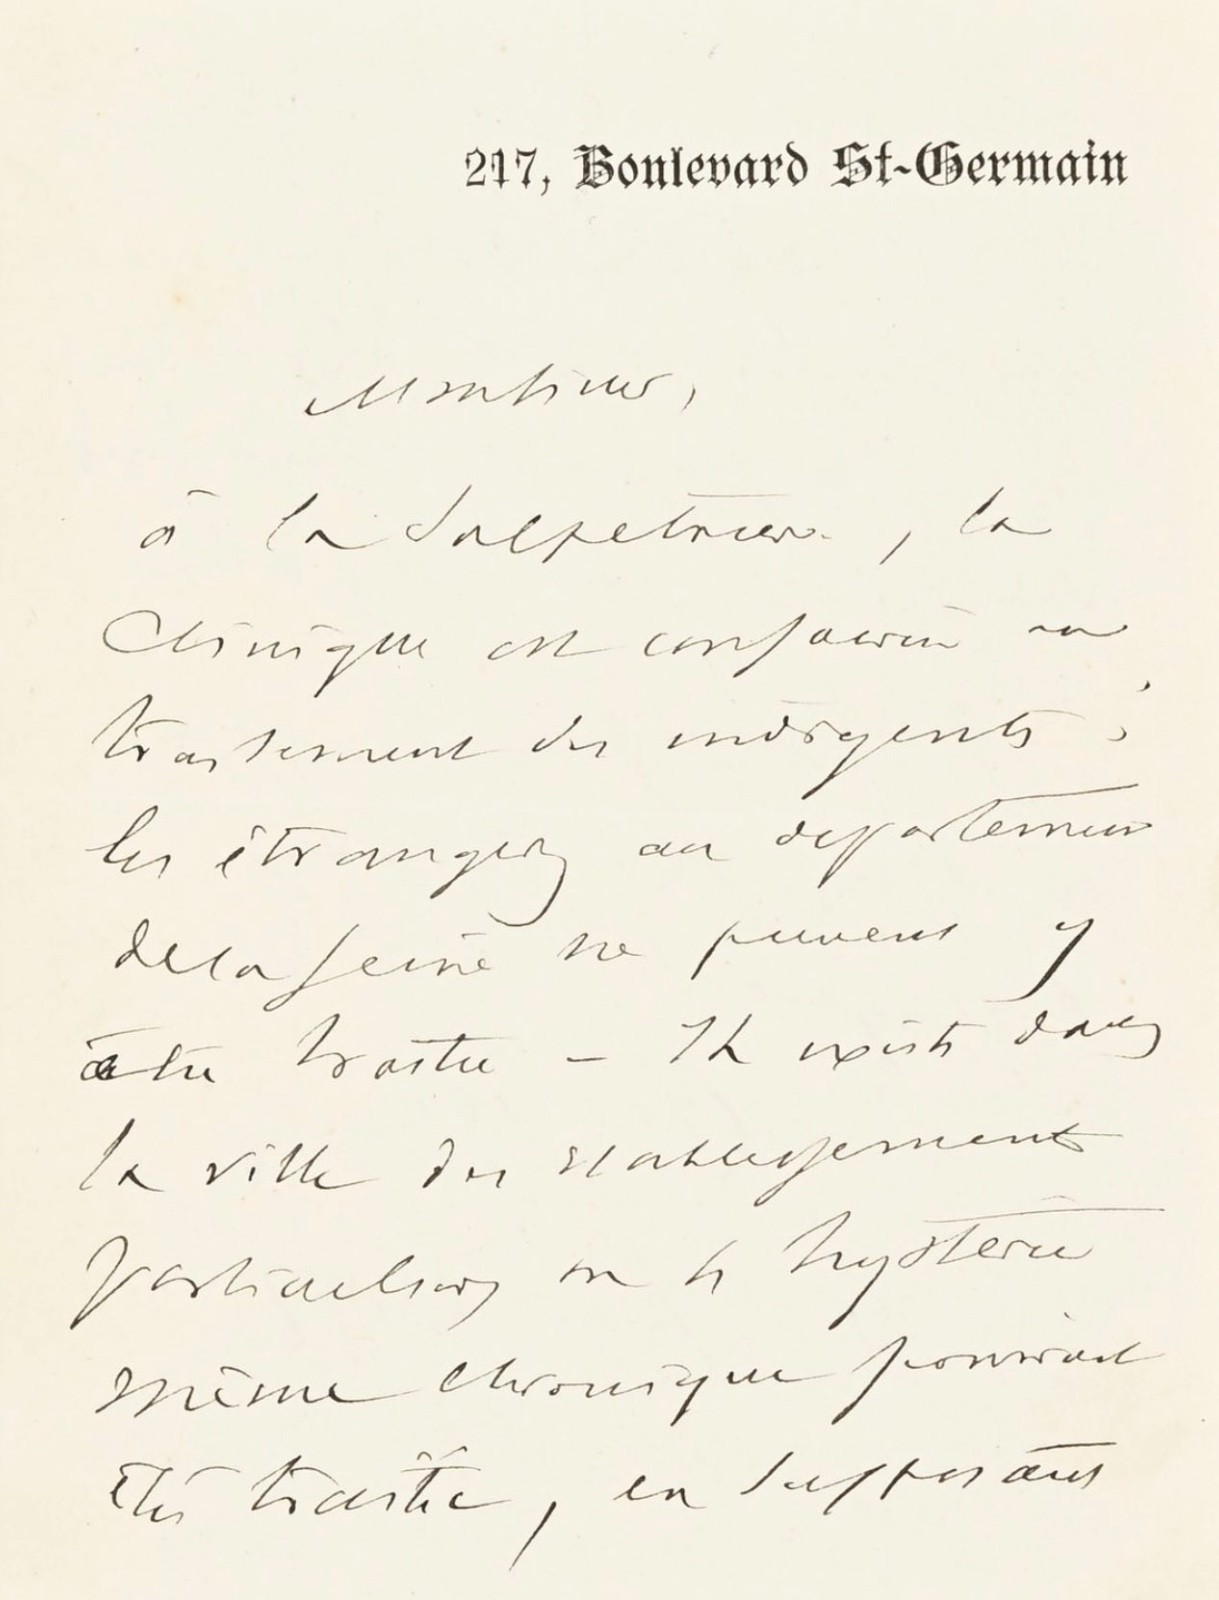 217, Boulevard St-Germain
Monsieur,
à la Salpetriere, la
Clinique est consacrée au
traitement des indigents ;
les étrangers au departement
de la Seine ne peuvent y
être traités – Il existe dans
la ville des etablissements
particuliers ou l' hystérie
même chronique pourrait
être traitée, en supposant